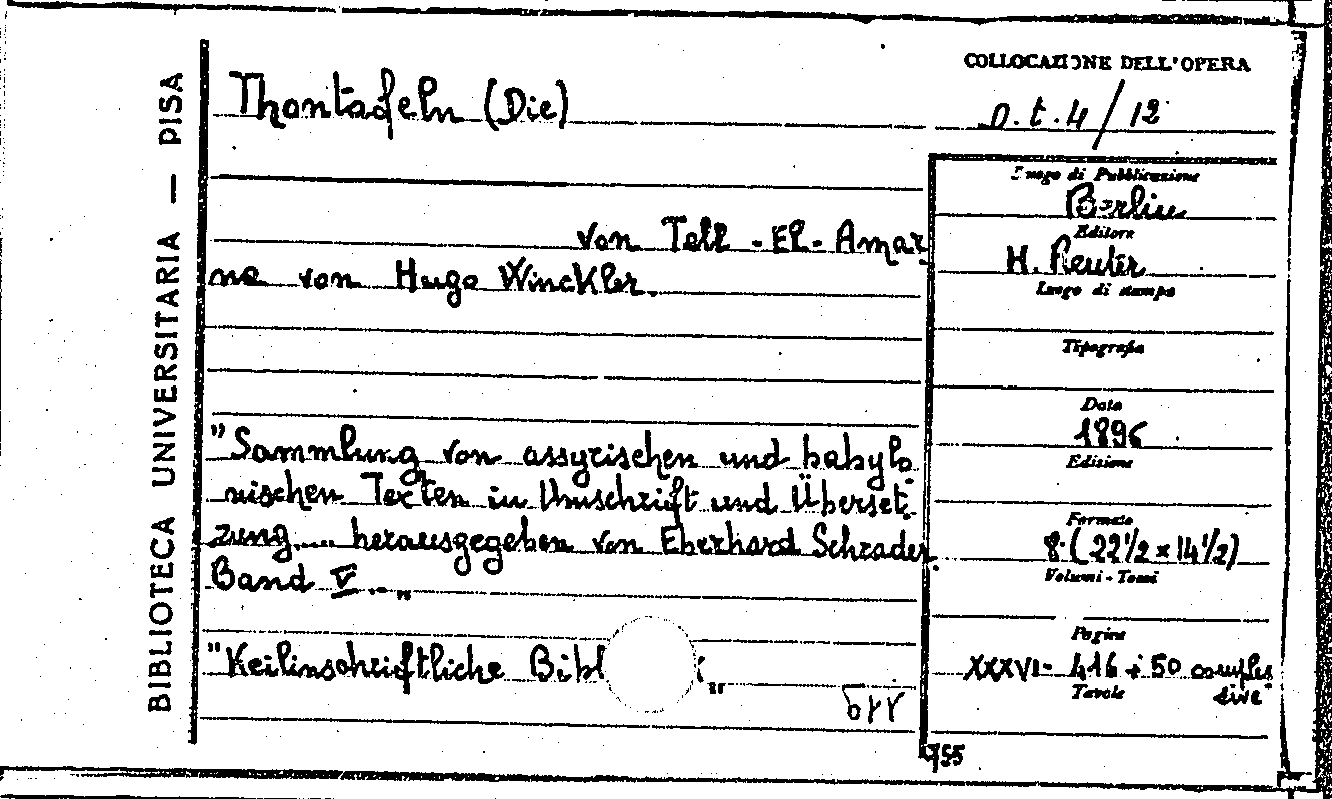 BIBLIOTECA UNIVERSITARIA — PISA
COLLOCAZIONE DELL'OPERA
O. t. 4 / 12
Thontafeln (Die)
von Tell - El - Amar
na von Hugo Winckler.
"Sammlung von assyrischen und babylo
nischen Texten in Umschrift und Überset
zung..... herausgegeben von Eberhard Schrader.
Band V..."
"Keilinschriftliche Bibl
Luogo di Pubblicazione
Berlin
Editore
H. Reuter
Luogo di stampa
Tipografia
Data
1896
Edizione
Formato
8° (22 1/2 x 14 1/2)
Volumi - Tomi
Pagine
XXXVI - 416 + 50 comples
sive
Tavole